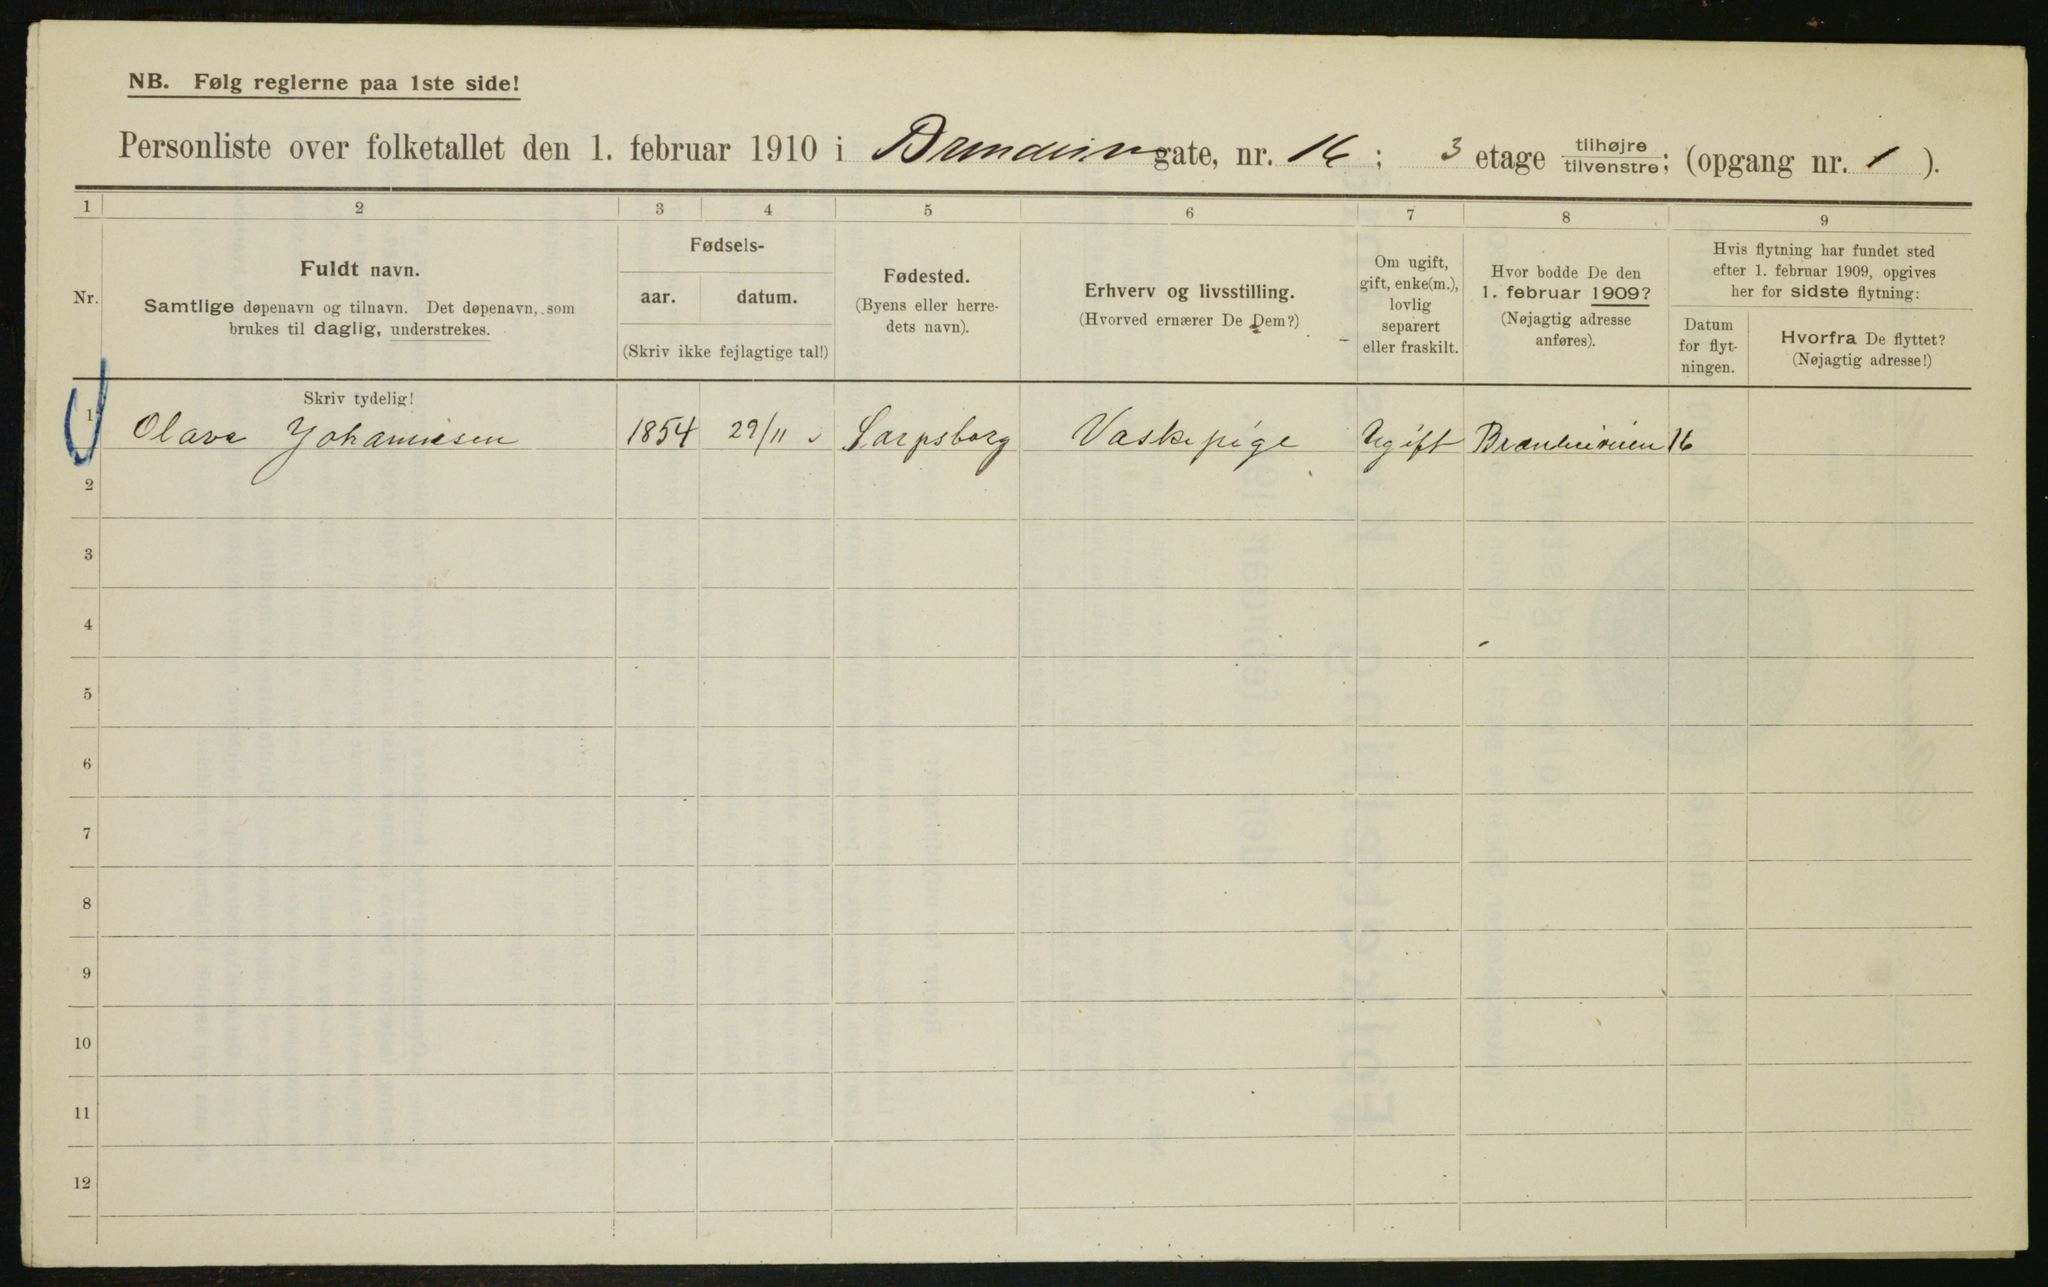 NB. Følg reglerne paa 1ste side!
Personliste over folketallet den 1. februar 1910 i gate, nr. 16 ; 3 etage tilhøjre tilvenstre; (opgang nr. 1 ).
1 2 3 4 5 6 7 8 9
Nr.
Fuldt navn.
Samtlige døpenavn og tilnavn. Det døpenavn, som
brukes til daglig, understrekes.
Fødsels-
aar. datum.
(Skriv ikke fejlagtige tal!)
Fødested.
(Byens eller herre-
dets navn).
Erhverv og livsstilling.
(Hvorved ernærer De Dem?)
Om ugift,
gift, enke(m.),
lovlig
separert
eller fraskilt.
Hvor bodde De den
1. februar 1909?
(Nøjagtig adresse
anføres).
Hvis flytning har fundet sted
efter 1. februar 1909, opgives
her for sidste flytning:
Datum
for flyt-
ningen.
Hvorfra De flyttet?
(Nøjagtig adresse!)
Skriv tydelig!
1 Olava Johannesen 1854 29/11 Sarpsborg Vaskepige Ugift 16
2
3
4
5
6
7
8
9
10
11
12